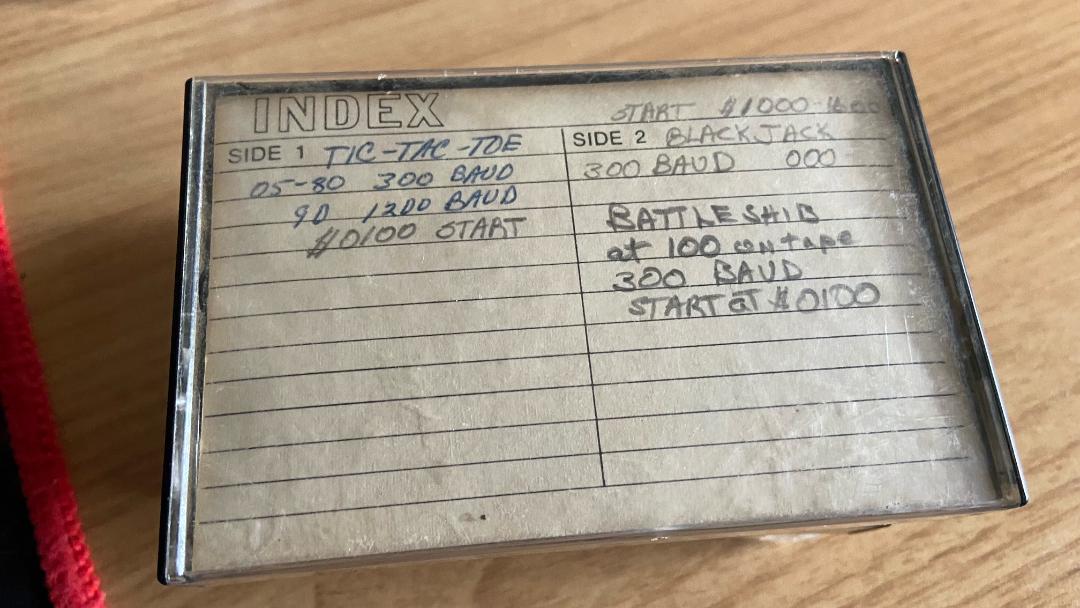 INDEX
SIDE 1 TIC-TAC-TOE
05-80 300 BAUD
90 1200 BAUD
$0100 START
START $1000-1600
SIDE 2 BLACKJACK
300 BAUD 000
BATTLESHIP
at 100 on tape
300 BAUD
START at $0100